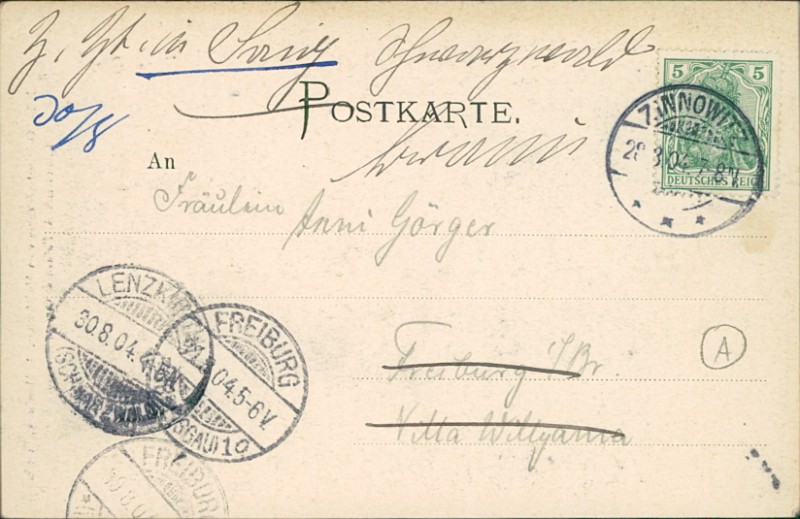 z. Zt. in Saig Schwarzwald
30/8
POSTKARTE.
An
Fräulein Anni Görger
Freiburg i/Br.
Villa Willyama
A
5 5
DEUTSCHES REICH
ZINNOWITZ
28.8.04. 7-8V.
LENZKIRCH
30.8.04.
(SCHWARZWALD)
FREIBURG
04.5-6V.
(BREISGAU) 10
FREIBURG
30.8.04